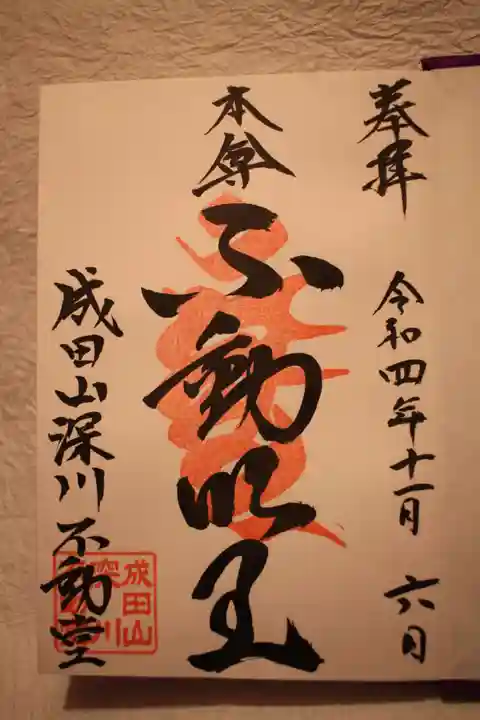 奉拝
令和四年十一月六日
本尊
不動明王
成田山深川不動堂
成田山